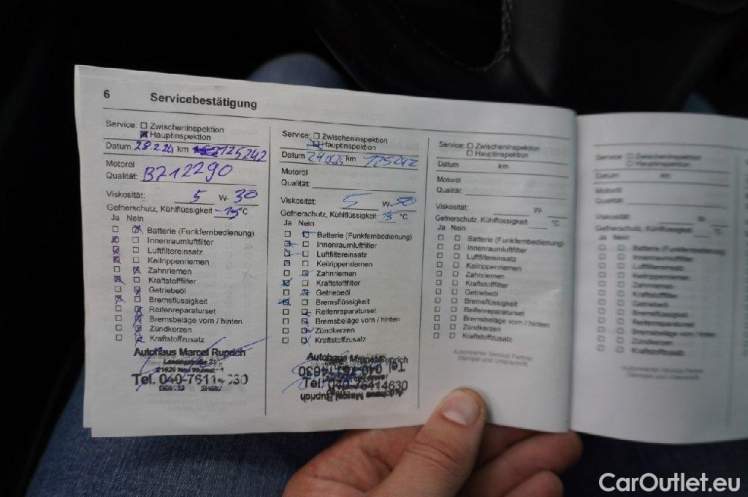 6 Servicebestätigung
Service: Zwischeninspektion
Hauptinspektion
Datum km 125242
Motoröl
Qualität: B712290
Viskosität: 5 W- 30
Gefrierschutz, Kühlflüssigkeit °C
Ja Nein
Batterie (Funkfernbedienung)
Innenraumluftfilter
Luftfiltereinsatz
Keilrippenriemen
Zahnriemen
Kraftstofffilter
Getriebeöl
Bremsflüssigkeit
Reifenreparaturset
Bremsbeläge vorn / hinten
Zündkerzen
Kraftstoffzusatz
Autohaus Marcel Ruprich
Tel. 040-7611
Service: Zwischeninspektion
Hauptinspektion
Datum km
Motoröl
Qualität:
Viskosität: 5 W-
Gefrierschutz, Kühlflüssigkeit °C
Ja Nein
Batterie (Funkfernbedienung)
Innenraumluftfilter
Luftfiltereinsatz
Keilrippenriemen
Zahnriemen
Kraftstofffilter
Getriebeöl
Bremsflüssigkeit
Reifenreparaturset
Bremsbeläge vorn / hinten
Zündkerzen
Kraftstoffzusatz
Autohaus
Service: Zwischeninspektion
Hauptinspektion
Datum km
Motoröl
Qualität:
Viskosität: W-
Gefrierschutz, Kühlflüssigkeit: °C
Ja Nein
Batterie (Funkfernbedienung)
Innenraumluftfilter
Luftfiltereinsatz
Keilrippenriemen
Zahnriemen
Kraftstofffilter
Getriebeöl
Bremsflüssigkeit
Reifenreparaturset
Bremsbeläge vorn / hinten
Zündkerzen
Kraftstoffzusatz
Service: Zwischeninspektion
Hauptinspektion
Datum km
Motoröl
Qualität:
Viskosität: W-
Gefrierschutz, Kühlflüssigkeit: °C
Ja Nein
Batterie (Funkfernbedienung)
Innenraumluftfilter
Luftfiltereinsatz
Keilrippenriemen
Zahnriemen
Kraftstofffilter
Getriebeöl
Bremsflüssigkeit
Reifenreparaturset
Bremsbeläge vorn / hinten
Zündkerzen
Kraftstoffzusatz
CarOutlet.eu